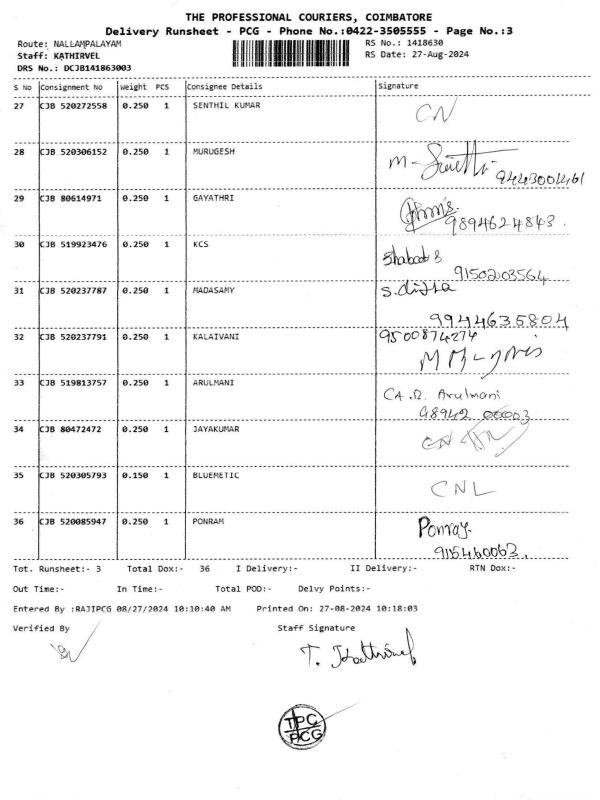 THE PROFESSIONAL COURIERS, COIMBATORE
Delivery Runsheet - PCG - Phone No.:0422-3505555 - Page No.:3
Route: NALLAMPALAYAM RS No.: 1418630
Staff: KATHIRVEL RS Date: 27-Aug-2024
DRS No.: DCJB141863003
S No Consignment No Weight PCS Consignee Details Signature
27 CJB 520272558 0.250 1 SENTHIL KUMAR CN
28 CJB 520306152 0.250 1 MURUGESH M-
9443001461
29 CJB 80614971 0.250 1 GAYATHRI
9894624843.
30 CJB 519923476 0.250 1 KCS
9150203564
31 CJB 520237787 0.250 1 MADASAMY
9944635804
32 CJB 520237791 0.250 1 KALAIVANI 9500874274
33 CJB 519813757 0.250 1 ARULMANI CA.D. Arulmani
98942 00003
34 CJB 80472472 0.250 1 JAYAKUMAR CN
35 CJB 520305793 0.150 1 BLUEMETIC CNL
36 CJB 520085947 0.250 1 PONRAM Ponraj.
9115460063.
Tot. Runsheet:- 3 Total Dox:- 36 I Delivery:- II Delivery:- RTN Dox:-
Out Time:- In Time:- Total POD:- Delvy Points:-
Entered By :RAJIPCG 08/27/2024 10:10:40 AM Printed On: 27-08-2024 10:18:03
Verified By Staff Signature
T. Kathirvel
TPC
PCG